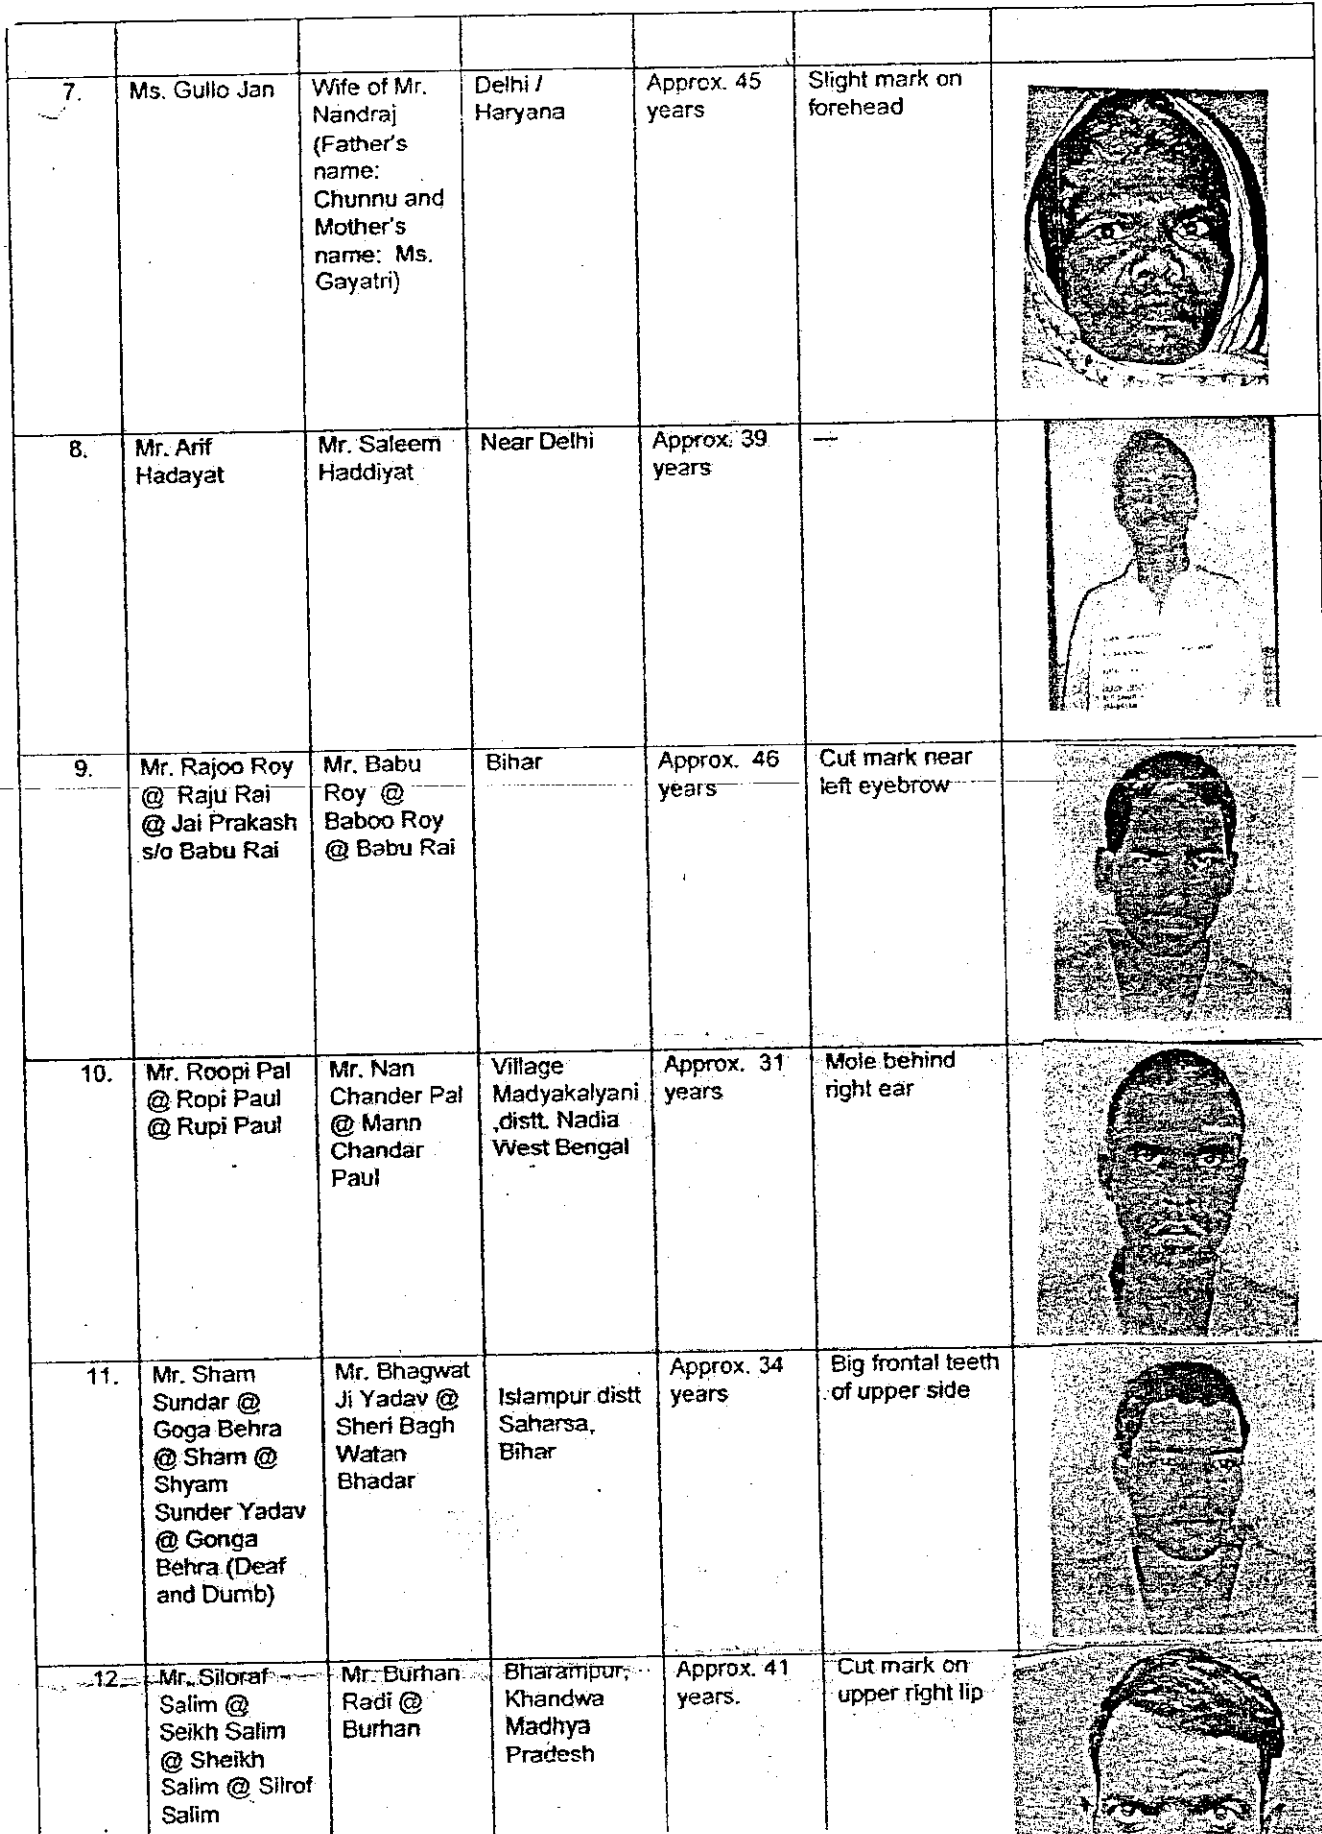 7.
Ms. Gullo Jan
Wife of Mr.
Nandraj
(Father's
name:
Chunnu and
Mother's
name: Ms.
Gayatri)
Delhi /
Haryana
Approx. 45
years
Slight mark on
forehead
8.
Mr. Arif
Hadayat
Mr. Saleem
Haddiyat
Near Delhi
Approx. 39
years
—
9.
Mr. Rajoo Roy
@ Raju Rai
@ Jai Prakash
s/o Babu Rai
Mr. Babu
Roy @
Baboo Roy
@ Babu Rai
Bihar
Approx. 46
years
Cut mark near
left eyebrow
10.
Mr. Roopi Pal
@ Ropi Paul
@ Rupi Paul
Mr. Nan
Chander Pal
@ Mann
Chandar
Paul
Village
Madyakalyani
,distt. Nadia
West Bengal
Approx. 31
years
Mole behind
right ear
11.
Mr. Sham
Sundar @
Goga Behra
@ Sham @
Shyam
Sunder Yadav
@ Gonga
Behra (Deaf
and Dumb)
Mr. Bhagwat
Ji Yadav @
Sheri Bagh
Watan
Bhadar
Islampur distt
Saharsa,
Bihar
Approx. 34
years
Big frontal teeth
of upper side
12
Mr. Siloraf
Salim @
Seikh Salim
@ Sheikh
Salim @ Silrof
Salim
Mr. Burhan
Radi @
Burhan
Bharampur,
Khandwa
Madhya
Pradesh
Approx. 41
years.
Cut mark on
upper right lip